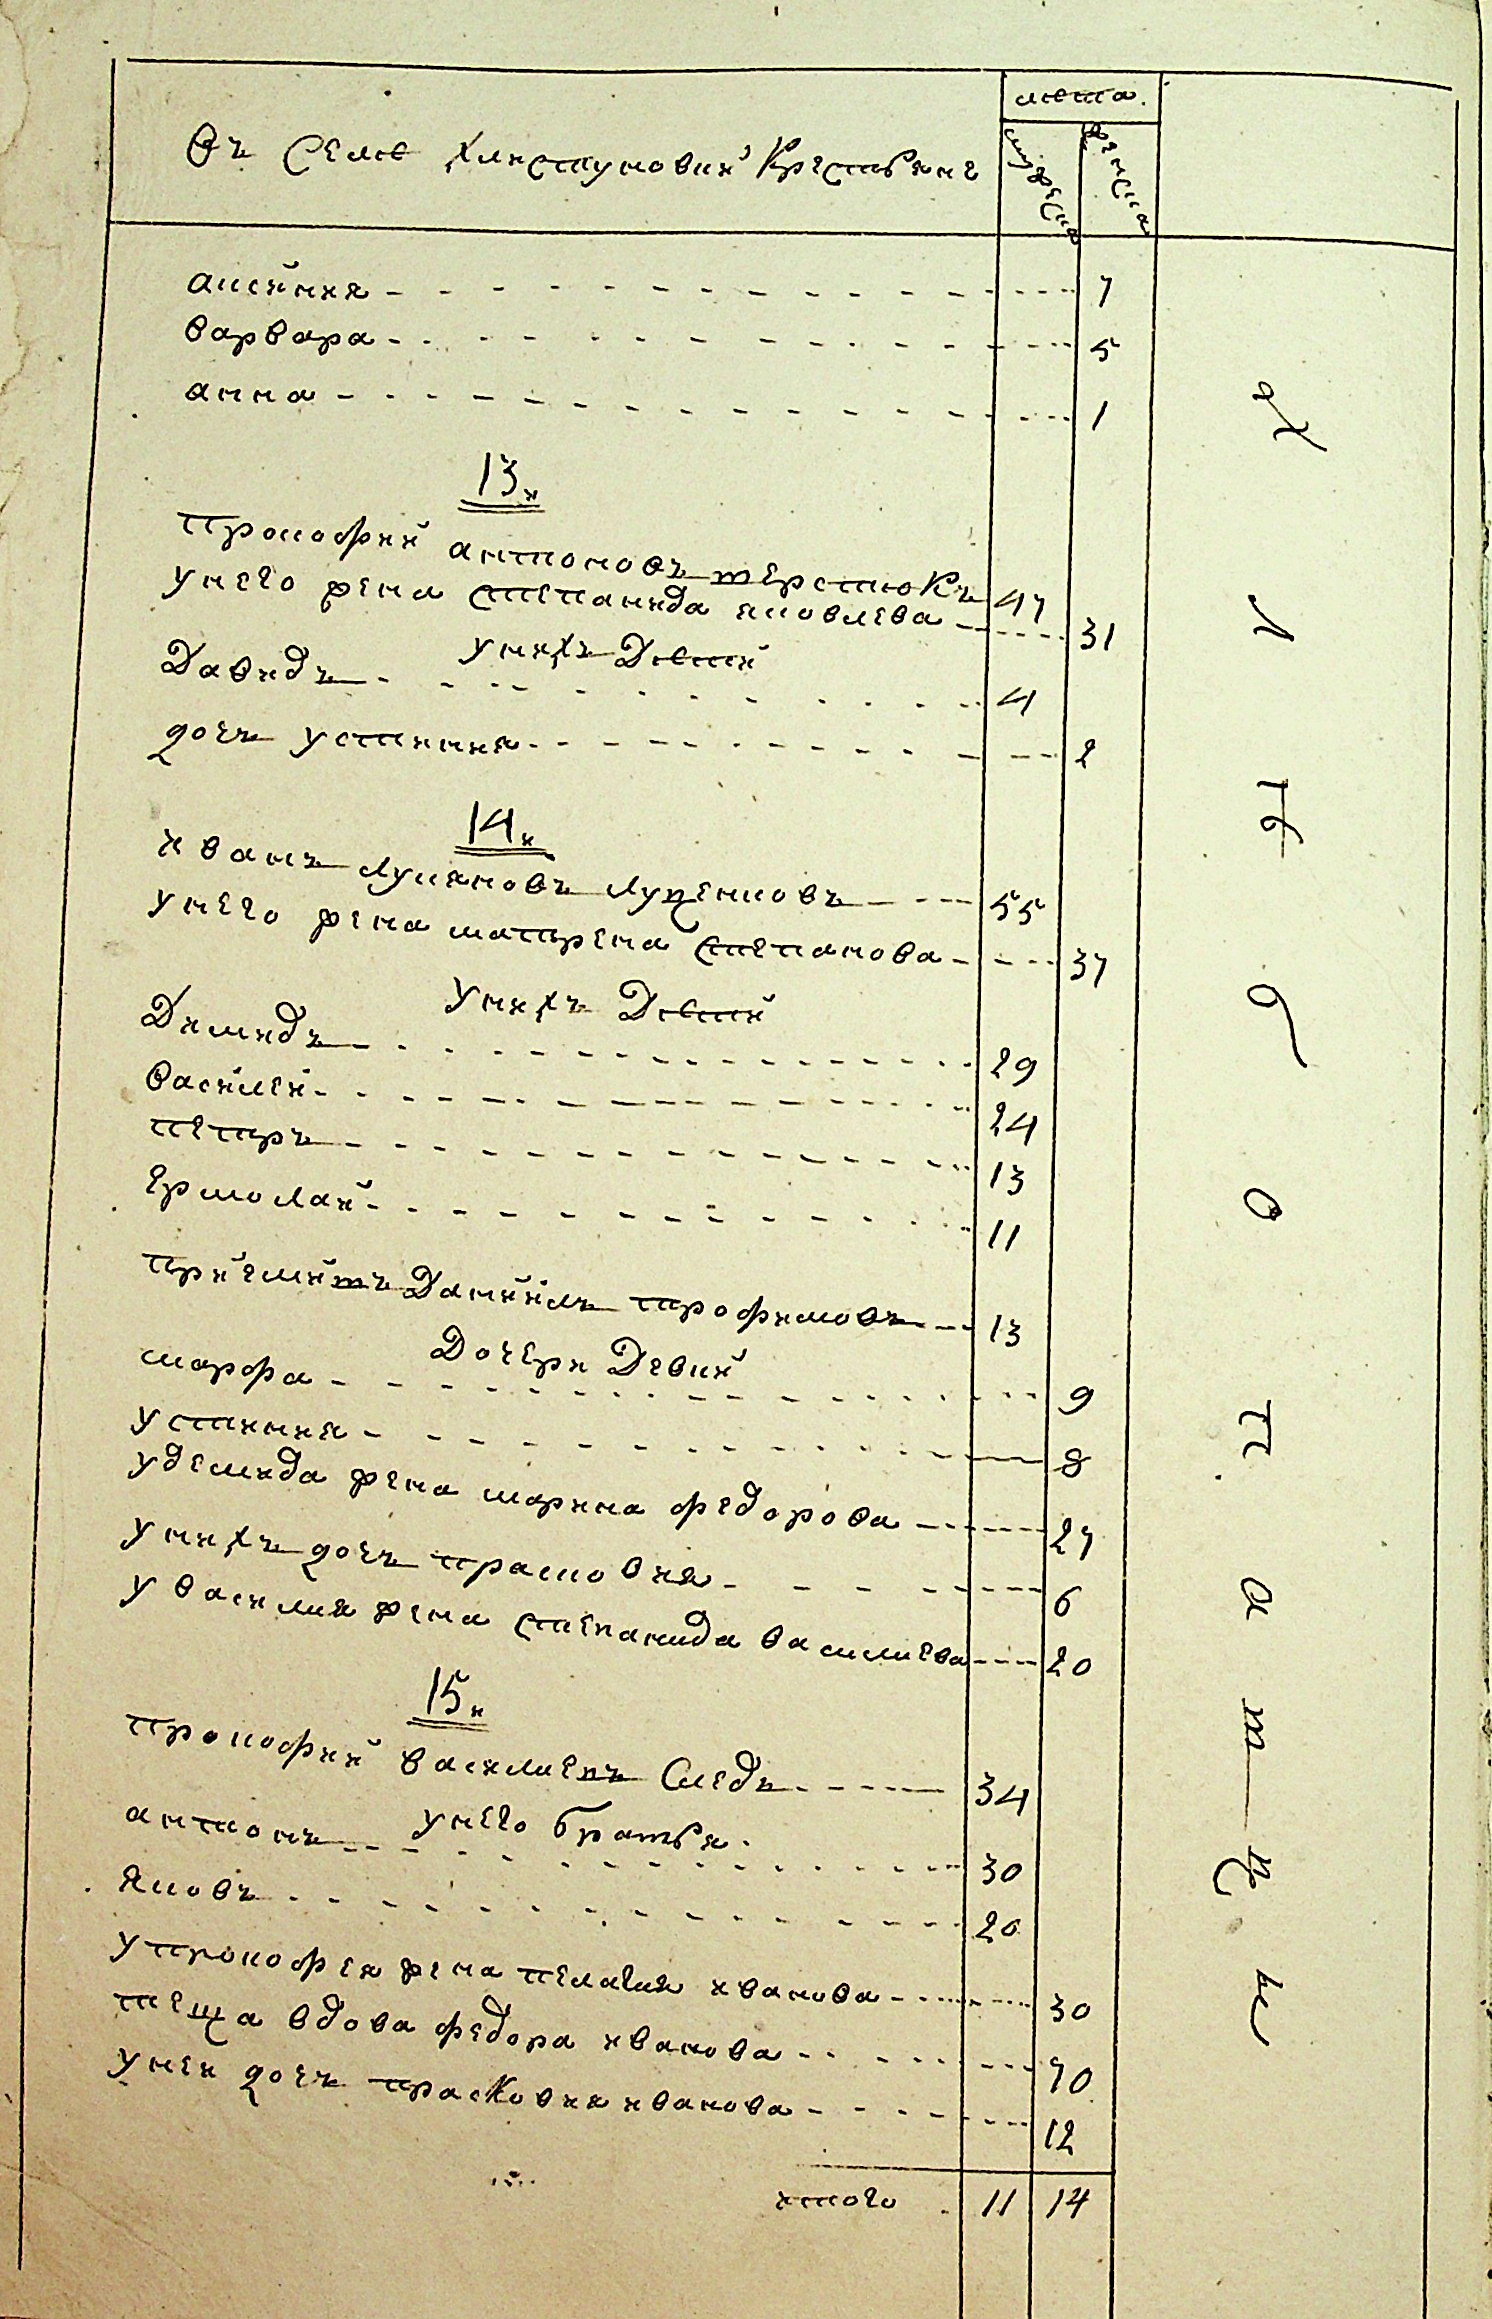 Въ Селѣ Хлистуновки Крестьяне
лѣта.
мужеска
женска
аксиния 7
варвара 5
анна 1
13и
прокофий антоновъ терстюкъ 47
унего жена степанида яковлева 31
унихъ Дѣтей
Давидъ 4
дочь устиния 2
14и
иванъ лукяновъ луценковъ 55
унего жена матрена степанова 37
унихъ Дѣтей
Димидъ 29
василей 24
петръ 13
ермолай 11
приемитъ Даниилъ трофимовъ 13
Дочери Девки
марфа 9
устиния 8
удемида жена марина федорова 27
унихъ дочь прасковия 6
у василия жена степанида василиева 20
15и
прокофий василиевъ Следь 34
унего братья.
антонъ 30
яковъ 20
упрокофея жена пелагия иванова 30
теща вдова федора иванова 70
унеи дочь прасковия иванова 12
итого 11 14
о
п
а
т
ц